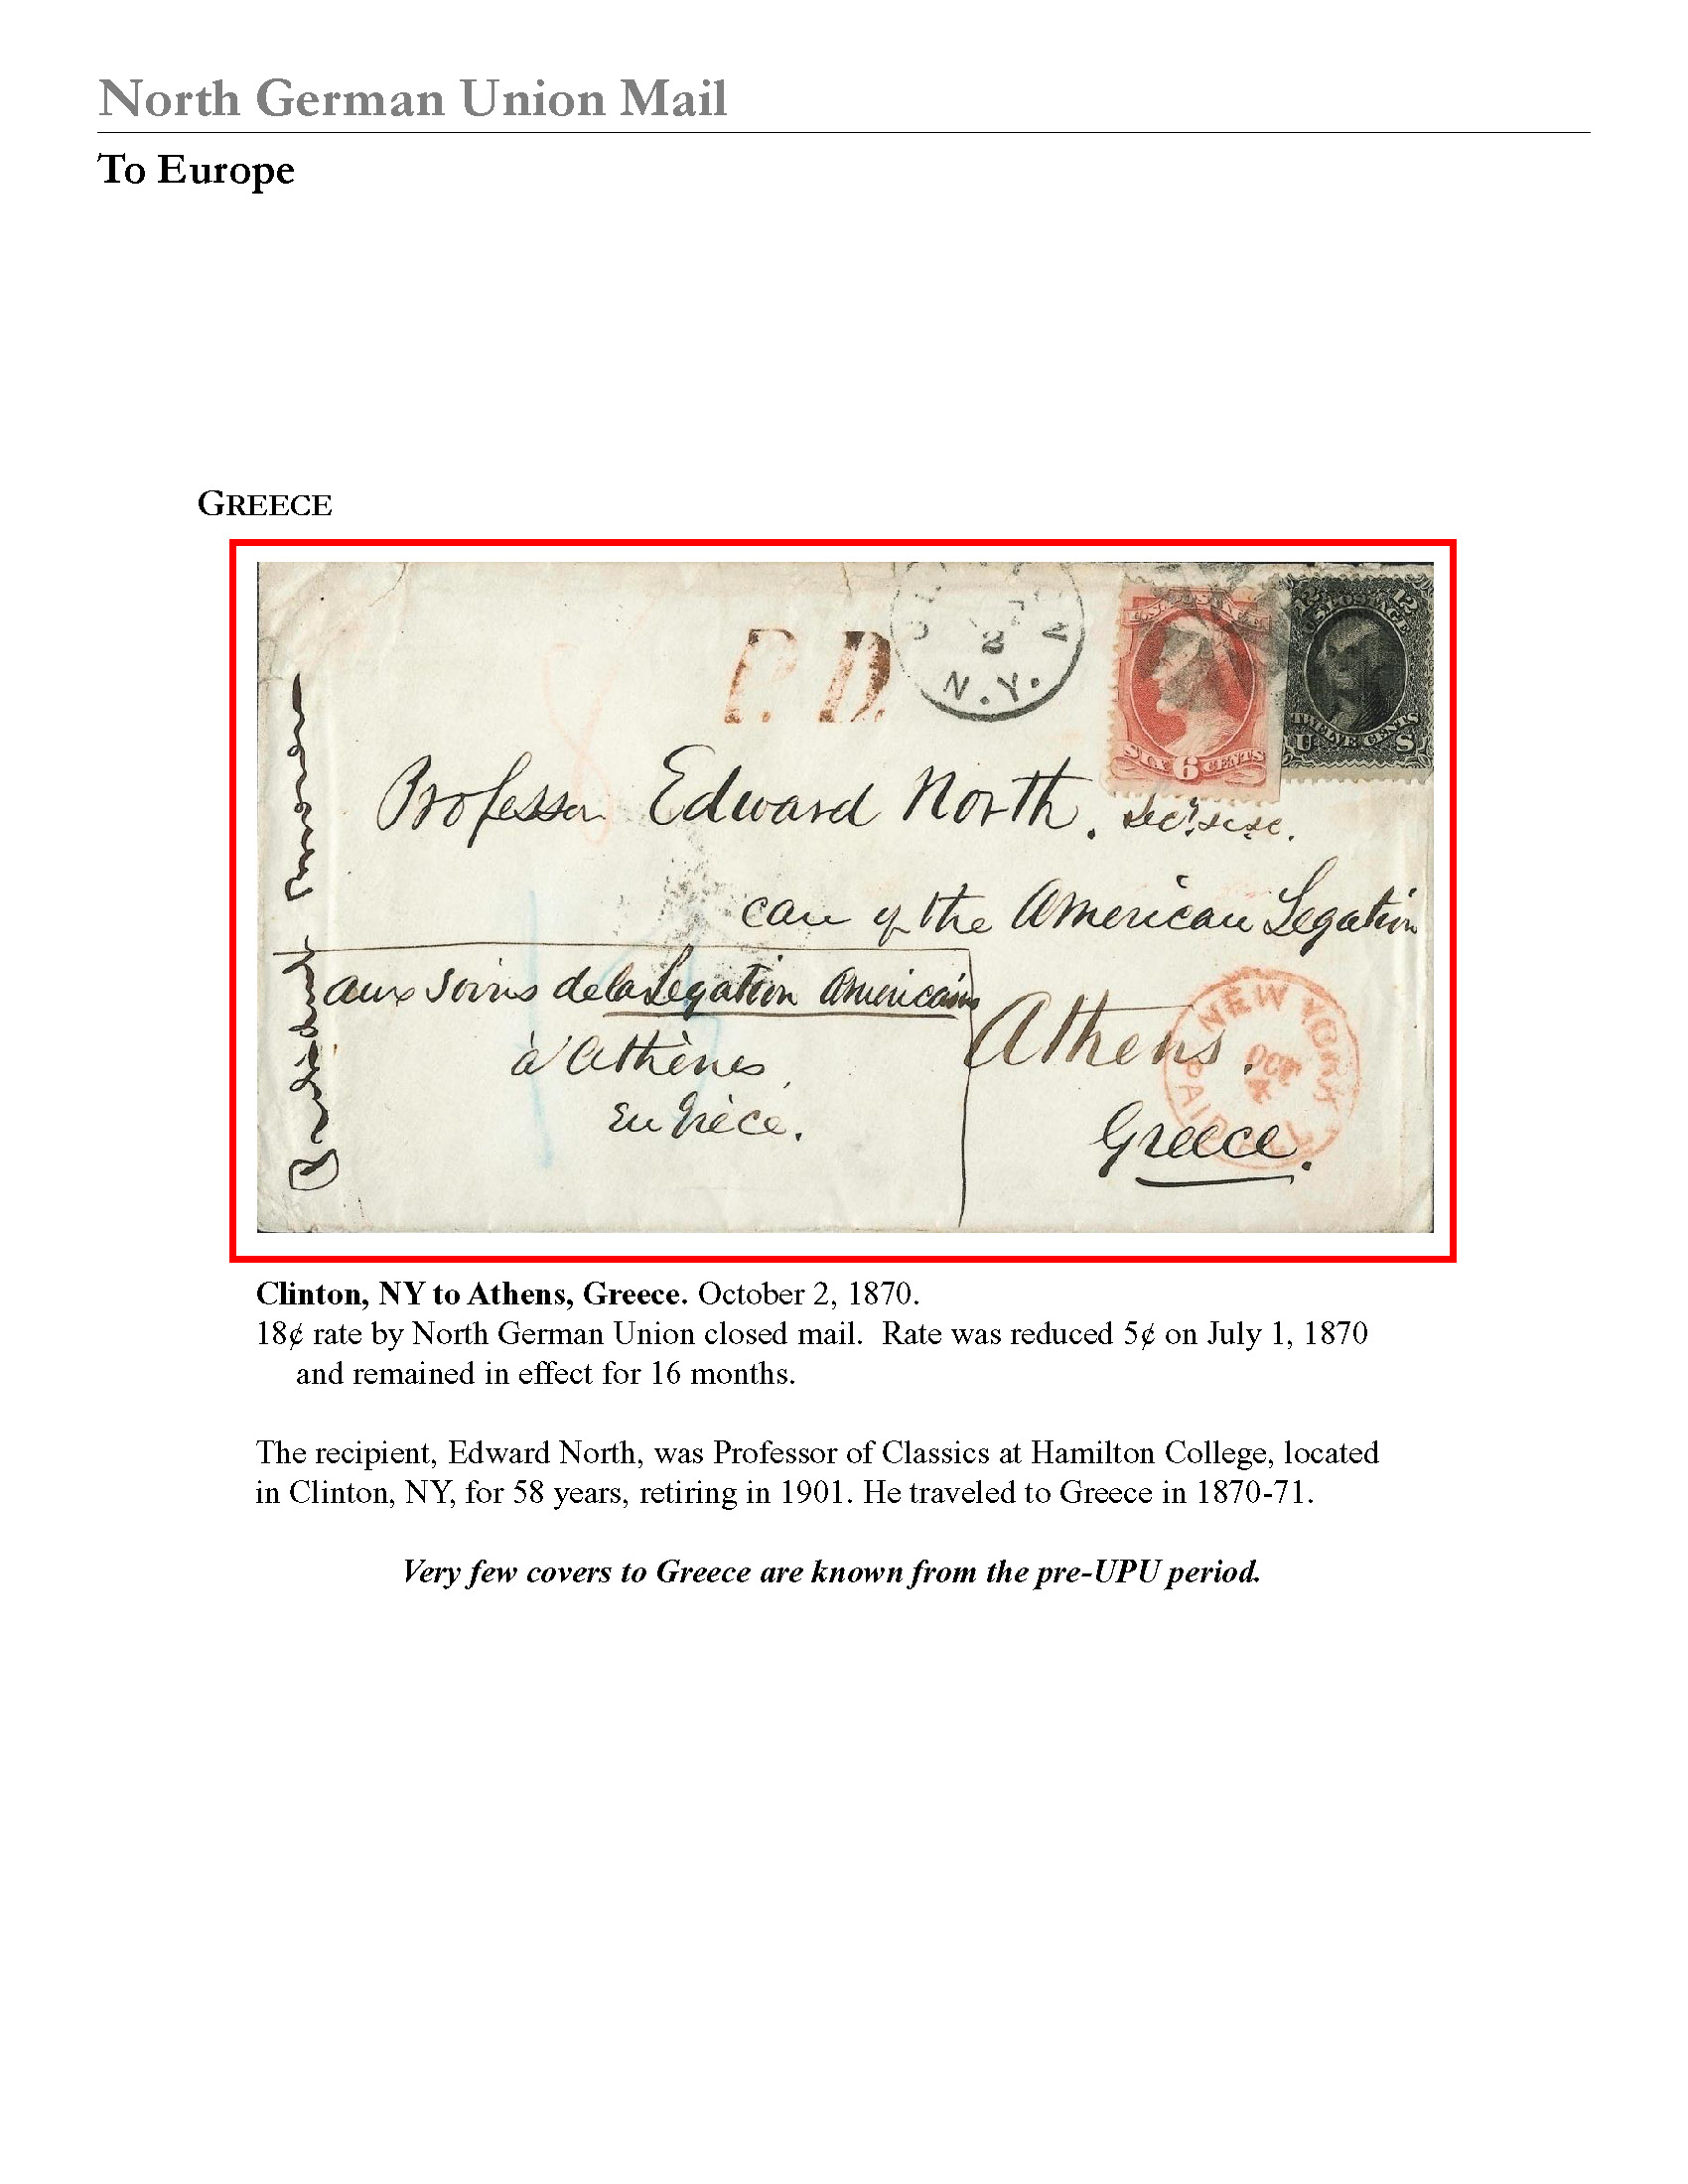 North German Union Mail
To Europe
GREECE
P. D.
2
N.Y.
U.S. POSTAGE
SIX 6 CENTS
12 12
U.S. POSTAGE
TWELVE CENTS
U S
Professor Edward North.
care of the American Legation
Athens.
Greece.
aux soins de la Legation Americaine
à Athènes,
en Grèce.
NEW YORK
OCT
4
PAID ALL
Clinton, NY to Athens, Greece. October 2, 1870.
18¢ rate by North German Union closed mail.  Rate was reduced 5¢ on July 1, 1870
and remained in effect for 16 months.
The recipient, Edward North, was Professor of Classics at Hamilton College, located
in Clinton, NY, for 58 years, retiring in 1901. He traveled to Greece in 1870-71.
Very few covers to Greece are known from the pre-UPU period.